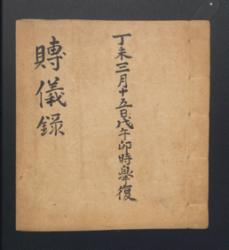 丁未三月十五日戊午卯時皋復
賻儀録